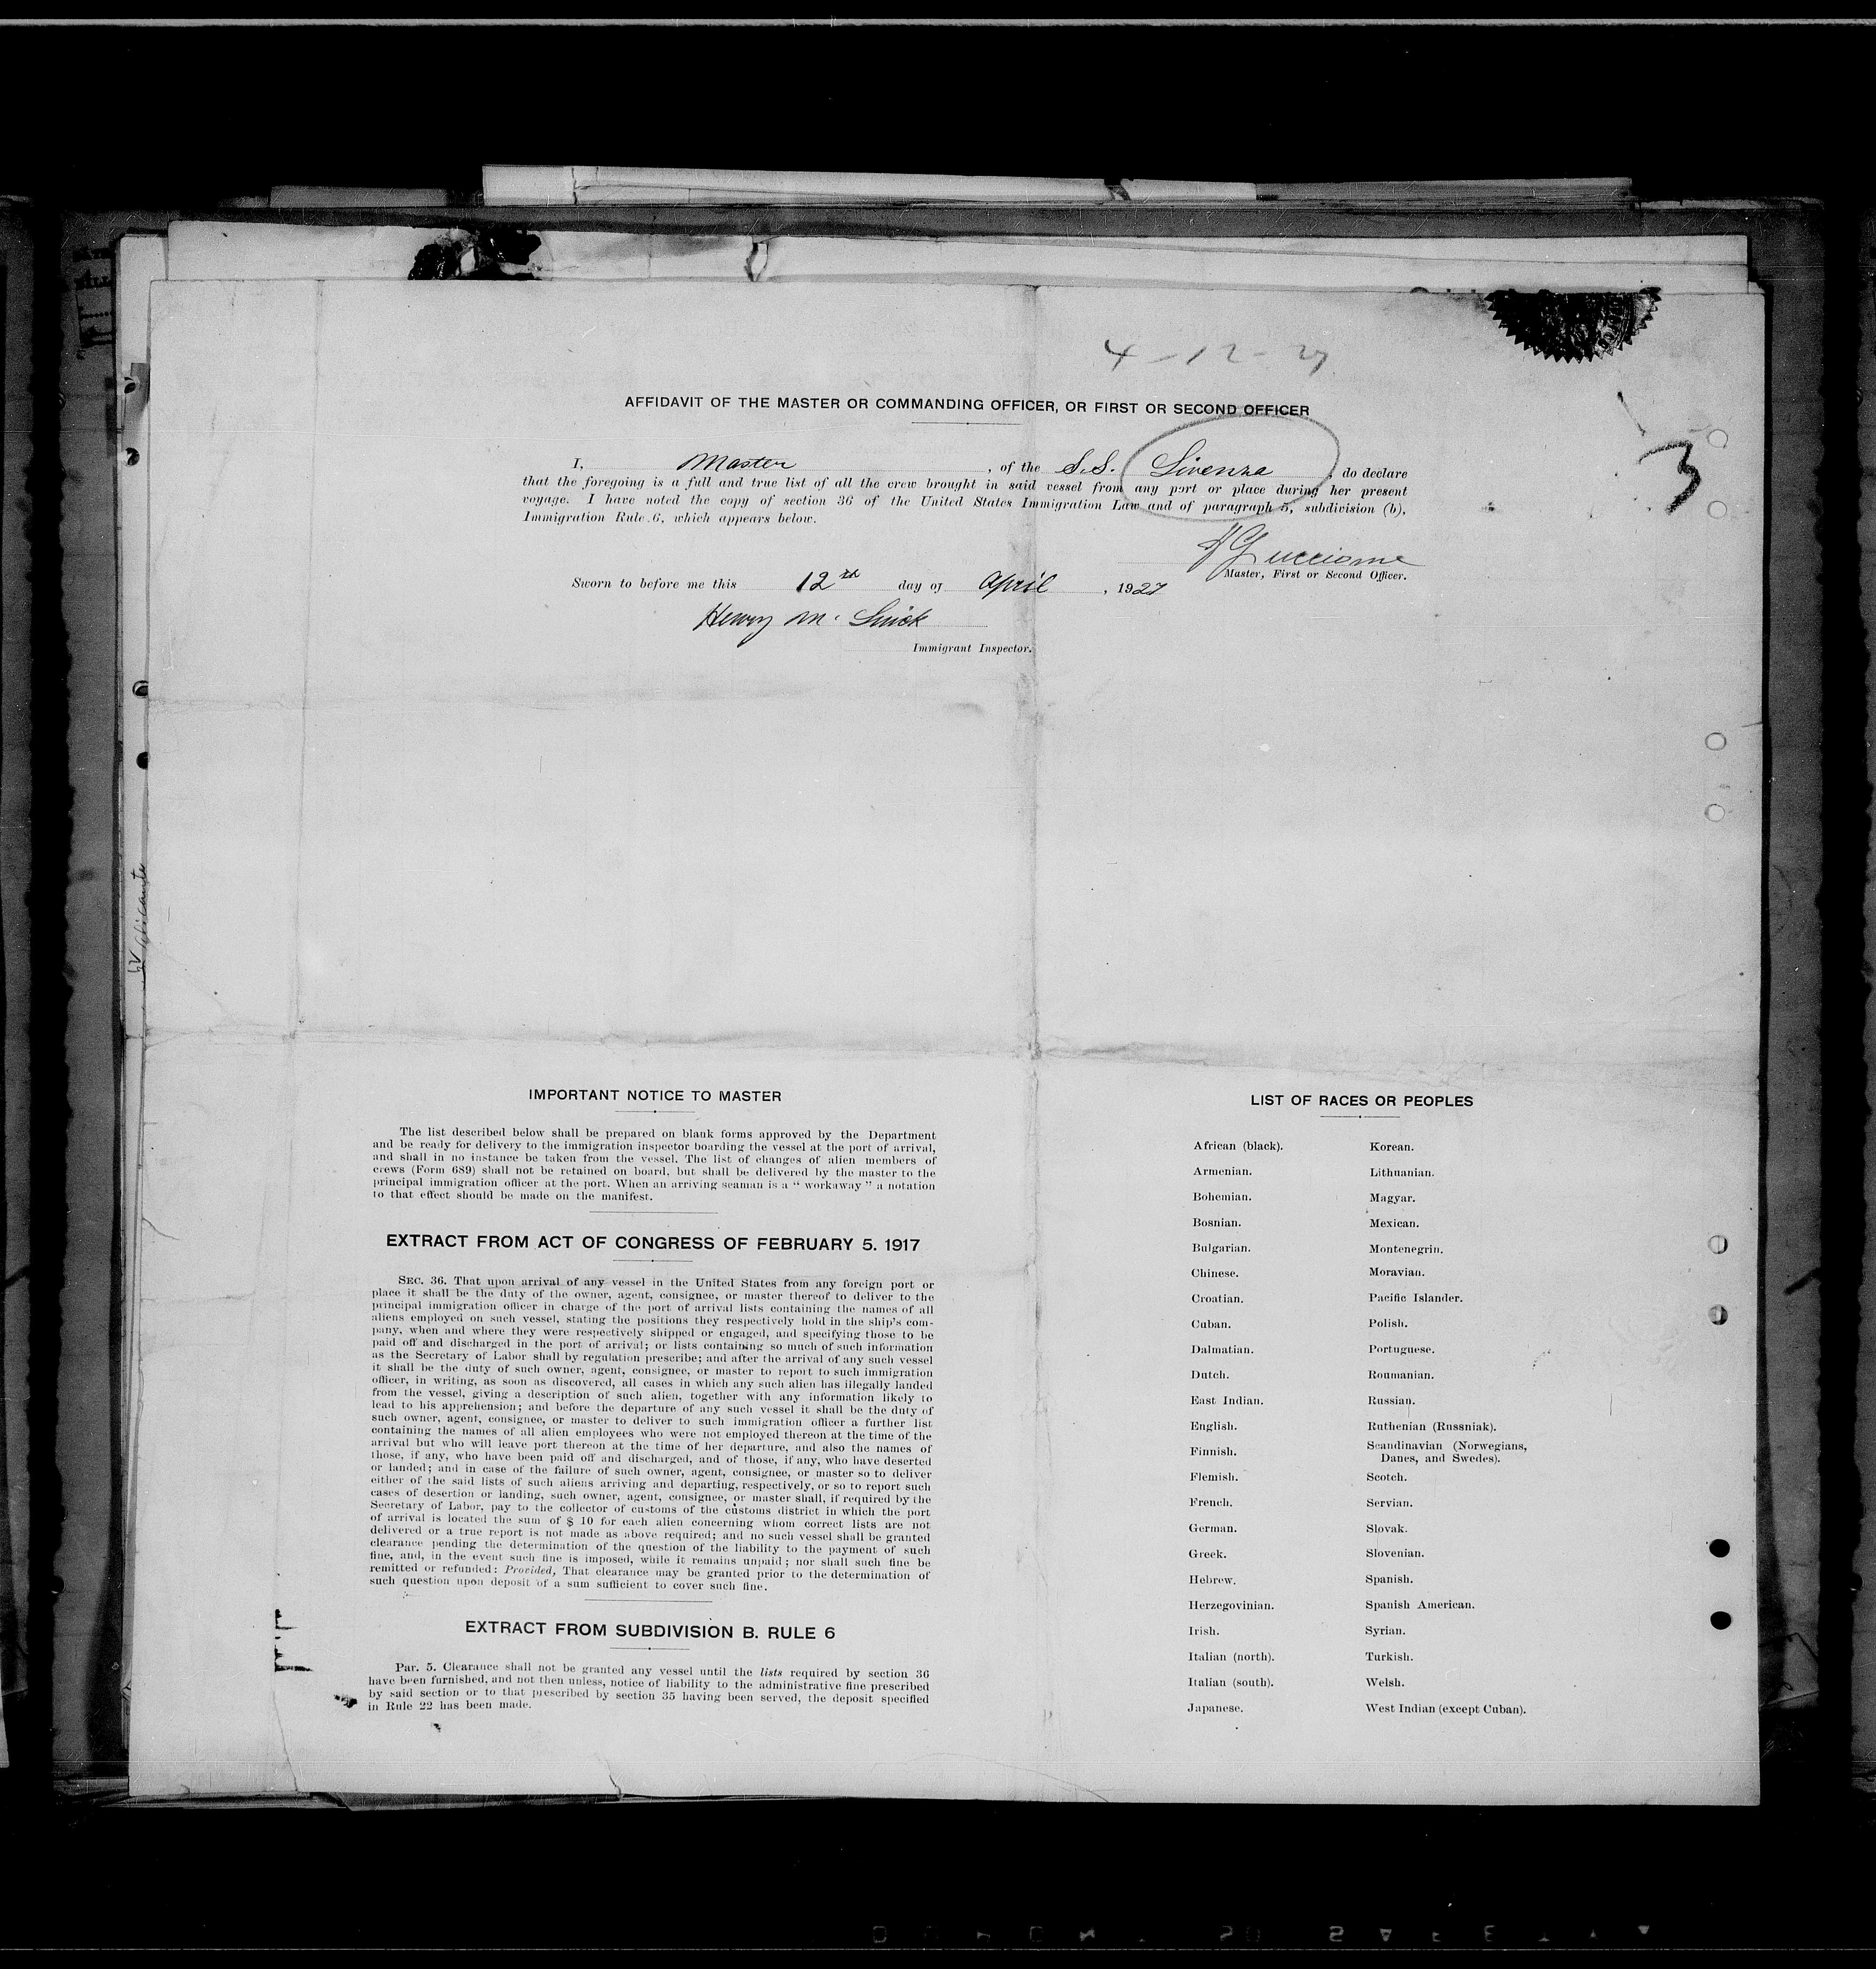 4-12-27
AFFIDAVIT OF THE MASTER OR COMMANDING OFFICER, OR FIRST OR SECOND OFFICER
3
I, Master, of the S.S. Livenza, do declare
that the foregoing is a full and true list of all the crew brought in said vessel from any port or place during her present
voyage. I have noted the copy of section 36 of the United States Immigration Law and of paragraph 5, subdivision (b),
Immigration Rule 6, which appears below.
Master, First or Second Officer.
Sworn to before me this 12th day of April, 1927
Henry M.
Immigrant Inspector.
IMPORTANT NOTICE TO MASTER
The list described below shall be prepared on blank forms approved by the Department
and be ready for delivery to the immigration inspector boarding the vessel at the port of arrival,
and shall in no instance be taken from the vessel. The list of changes of alien members of
crews (Form 689) shall not be retained on board, but shall be delivered by the master to the
principal immigration officer at the port. When an arriving seaman is a “ workaway ” a notation
to that effect should be made on the manifest.
EXTRACT FROM ACT OF CONGRESS OF FEBRUARY 5. 1917
SEC. 36. That upon arrival of any vessel in the United States from any foreign port or
place it shall be the duty of the owner, agent, consignee, or master thereof to deliver to the
principal immigration officer in charge of the port of arrival lists containing the names of all
aliens employed on such vessel, stating the positions they respectively hold in the ship's com-
pany, when and where they were respectively shipped or engaged, and specifying those to be
paid off and discharged in the port of arrival; or lists containing so much of such information
as the Secretary of Labor shall by regulation prescribe; and after the arrival of any such vessel
it shall be the duty of such owner, agent, consignee, or master to report to such immigration
officer, in writing, as soon as discovered, all cases in which any such alien has illegally landed
from the vessel, giving a description of such alien, together with any information likely to
lead to his apprehension; and before the departure of any such vessel it shall be the duty of
such owner, agent, consignee, or master to deliver to such immigration officer a further list
containing the names of all alien employees who were not employed thereon at the time of the
arrival but who will leave port thereon at the time of her departure, and also the names of
those, if any, who have been paid off and discharged, and of those, if any, who have deserted
or landed; and in case of the failure of such owner, agent, consignee, or master so to deliver
either of the said lists of such aliens arriving and departing, respectively, or so to report such
cases of desertion or landing, such owner, agent, consignee, or master shall, if required by the
Secretary of Labor, pay to the collector of customs of the customs district in which the port
of arrival is located the sum of $ 10 for each alien concerning whom correct lists are not
delivered or a true report is not made as above required; and no such vessel shall be granted
clearance pending the determination of the question of the liability to the payment of such
fine, and, in the event such fine is imposed, while it remains unpaid; nor shall such fine be
remitted or refunded: Provided, That clearance may be granted prior to the determination of
such question upon deposit of a sum sufficient to cover such fine.
EXTRACT FROM SUBDIVISION B. RULE 6
Par. 5. Clearance shall not be granted any vessel until the lists required by section 36
have been furnished, and not then unless, notice of liability to the administrative fine prescribed
by said section or to that prescribed by section 35 having been served, the deposit specified
in Rule 22 has been made.
LIST OF RACES OR PEOPLES
African (black).
Armenian.
Bohemian.
Bosnian.
Bulgarian.
Chinese.
Croatian.
Cuban.
Dalmatian.
Dutch.
East Indian.
English.
Finnish.
Flemish.
French.
German.
Greek.
Hebrew.
Herzegovinian.
Irish.
Italian (north).
Italian (south).
Japanese.
Korean.
Lithuanian.
Magyar.
Mexican.
Montenegrin.
Moravian.
Pacific Islander.
Polish.
Portuguese.
Roumanian.
Russian.
Ruthenian (Russniak).
Scandinavian (Norwegians,
Danes, and Swedes).
Scotch.
Servian.
Slovak.
Slovenian.
Spanish.
Spanish American.
Syrian.
Turkish.
Welsh.
West Indian (except Cuban).